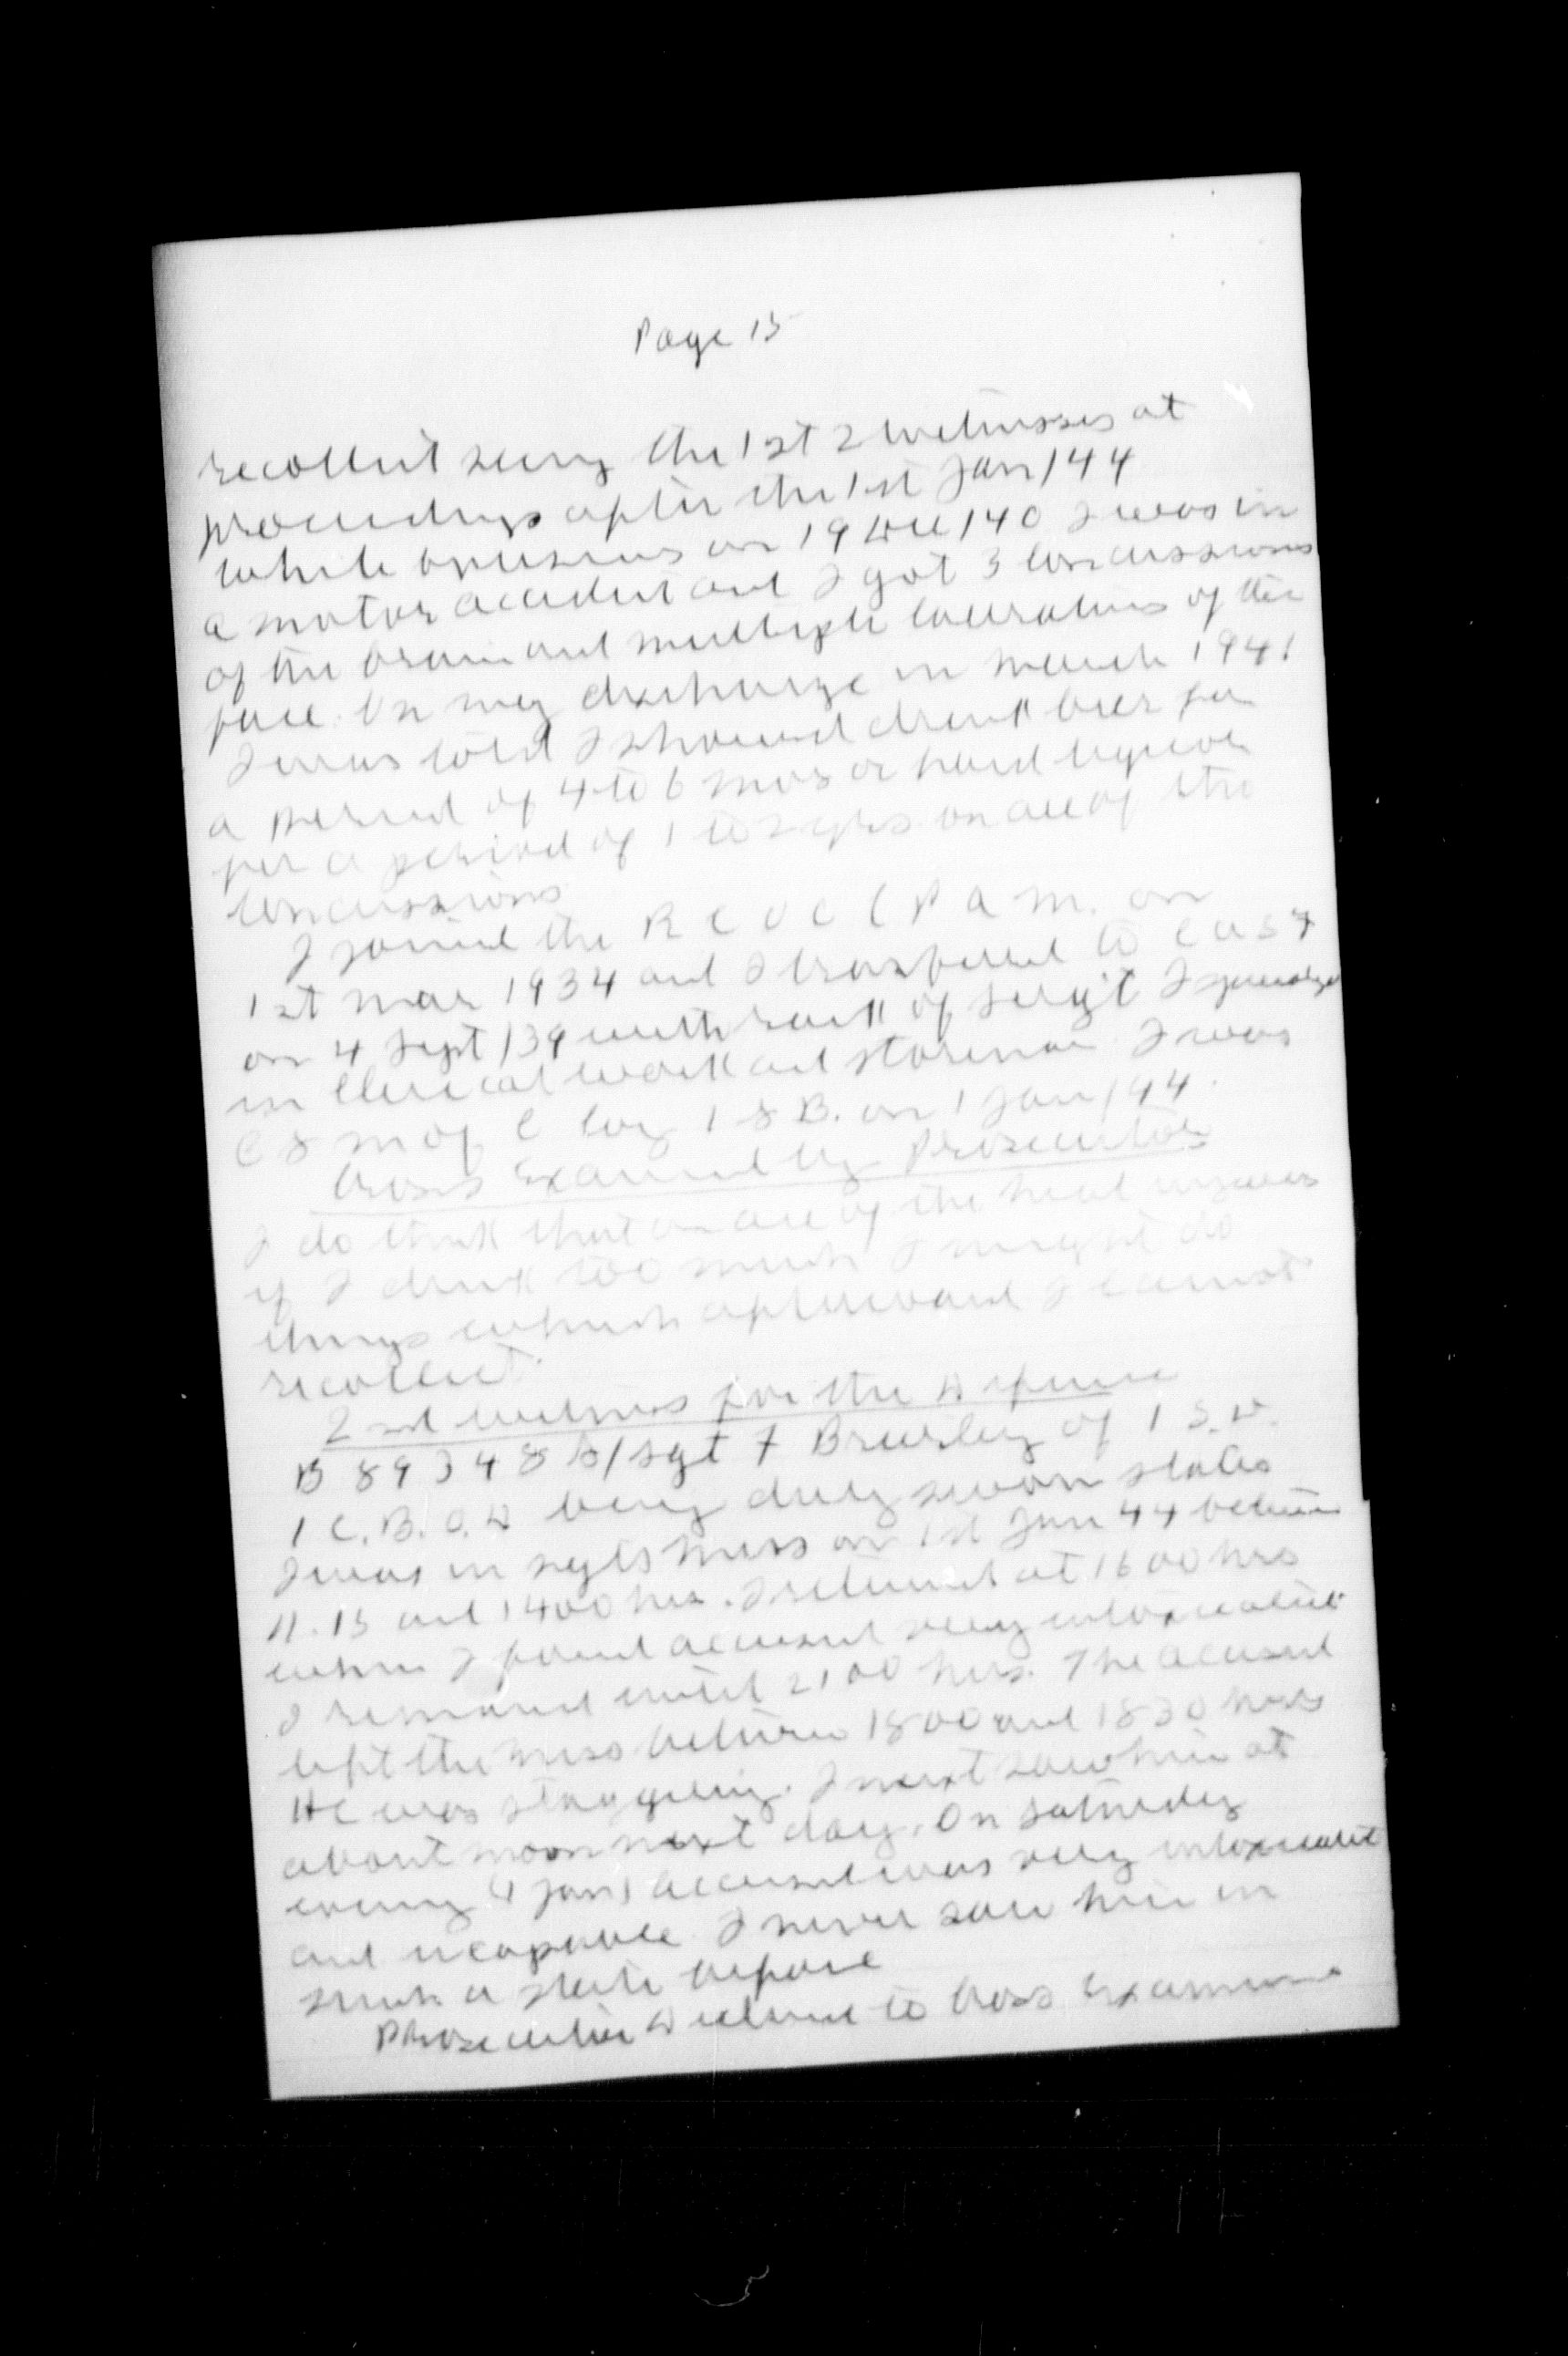 Page 15
recollect seeing the 1st 2 witnesses at
proceedings after the 1st Jan/44
while on 19 Dec/40 I was in
a motor accident and I got 3 concussions
of the brain and multiple lacerations of the
face. On my discharge in March 1941
I was told I should drink beer for
a period of 4 to 6 mos or hard liquor
for a period of 1 to 2 yrs on acc of the
concussions
I joined the R C O C (P a m. on
1st Mar 1934 and I transferred to C A S F
on 4 Sept/39 with rank of Sergt I
in clerical work and storeman I was
C S M of C Coy 1 S B. on 1 Jan/44.
Cross Examined by Prosecutor
I do think that on acc of the head injuries
if I drink too much I might do
things which afterward I cannot
recollect.
2nd witness for the Defence
B 89348 S/Sgt F of 1 S.D.
1 C.B.O.D being duly sworn states
I was in Sgts Mess on 1st Jan 44 between
11.15 and 1400 hrs. I returned at 1600 hrs
when I found accused very intoxicated
I remained until 2100 hrs. The accused
left the mess between 1800 and 1830 hrs
He was staggering. I next saw him at
about noon next day. On Saturday
evening (1 Jan) accused was very intoxicated
and incapable I never saw him in
such a state before
Prosecutor Declined to Cross Examine